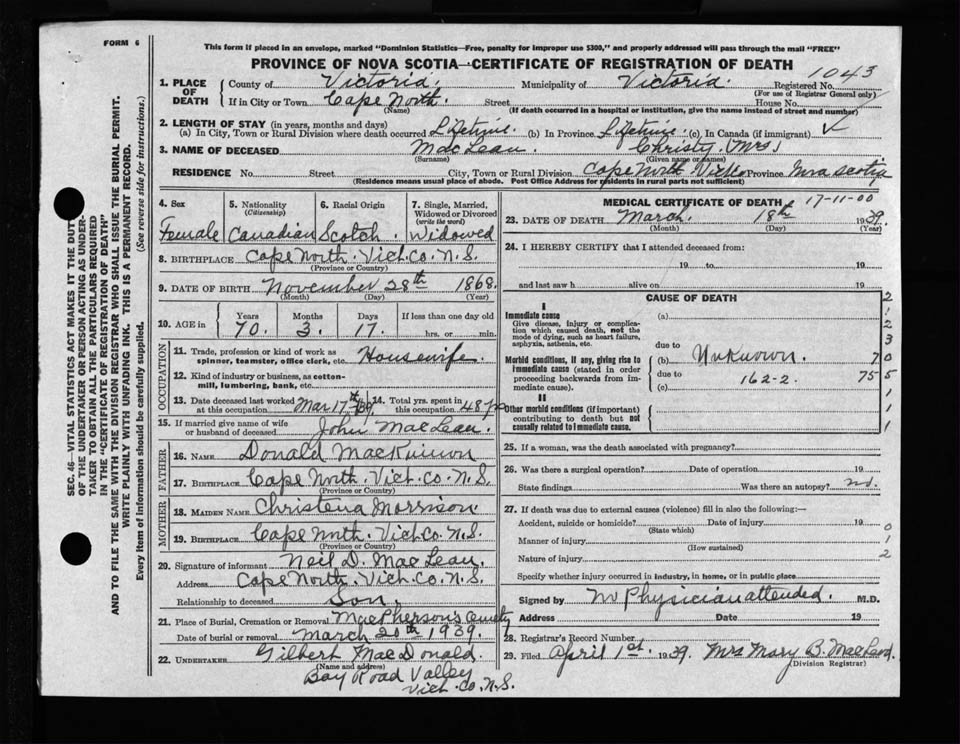 FORM 6
This form if placed in an envelope, marked "Dominion Statistics—Free, penalty for improper use $300," and properly addressed will pass through the mail "FREE"
PROVINCE OF NOVA SCOTIA—CERTIFICATE OF REGISTRATION OF DEATH
1043
1. PLACE OF DEATH
County of Victoria. Municipality of Victoria. Registered No.
(For use of Registrar General only)
If in City or Town Cape North. Street House No.
(Name) (If death occurred in a hospital or institution, give the name instead of street and number)
2. LENGTH OF STAY (in years, months and days)
(a) In City, Town or Rural Division where death occurred Lifetime. (b) In Province Lifetime. (c) In Canada (if immigrant) ✓
3. NAME OF DECEASED MacLean. Christy (Mrs)
(Surname) (Given name or names)
RESIDENCE No. Street City, Town or Rural Division Cape North Vict. Province Nova Scotia
(Residence means usual place of abode. Post Office Address for residents in rural parts not sufficient)
4. Sex 5. Nationality (Citizenship) 6. Racial Origin 7. Single, Married, Widowed or Divorced (write the word)
Female Canadian Scotch. Widowed
8. BIRTHPLACE Cape North. Vict. Co. N.S.
(Province or Country)
9. DATE OF BIRTH November 28th 1868.
(Month) (Day) (Year)
10. AGE in Years Months Days If less than one day old
70. 3. 17. hrs. or min.
OCCUPATION
11. Trade, profession or kind of work as spinner, teamster, office clerk, etc. Housewife.
12. Kind of industry or business, as cotton-mill, lumbering, bank, etc.
13. Date deceased last worked at this occupation Mar 17th/39. 14. Total yrs. spent in this occupation 48 yrs
15. If married give name of wife or husband of deceased John MacLean.
FATHER
16. NAME Donald MacKinnon
17. BIRTHPLACE Cape North. Vict. Co. N.S.
(Province or Country)
MOTHER
18. MAIDEN NAME Christena Morrison
19. BIRTHPLACE Cape North. Vict. Co. N.S.
(Province or Country)
20. Signature of informant Neil D. MacLean.
Address Cape North. Vict. Co. N.S.
Relationship to deceased Son.
21. Place of Burial, Cremation or Removal MacPherson's Cemetry
Date of burial or removal March 20th 1939.
22. UNDERTAKER Gilbert MacDonald
(Name and address)
Bay Road Valley
Vict. Co. N.S.
MEDICAL CERTIFICATE OF DEATH 17-11-00
23. DATE OF DEATH March. 18th 1939.
(Month) (Day) (Year)
24. I HEREBY CERTIFY that I attended deceased from:
19 to 19
and last saw h alive on 19
CAUSE OF DEATH
I
Immediate cause (a)
Give disease, injury or complication which caused death, not the mode of dying, such as heart failure, asphyxia, asthenia, etc.
due to
Morbid conditions, if any, giving rise to immediate cause (stated in order proceeding backwards from immediate cause). (b) Unknown. 70
due to 162-2. 75
(c)
II
Other morbid conditions (if important) contributing to death but not causally related to immediate cause.
2
1
2
3
0
5
1
1
1
25. If a woman, was the death associated with pregnancy?
26. Was there a surgical operation? Date of operation 19
State findings Was there an autopsy? no.
27. If death was due to external causes (violence) fill in also the following:—
Accident, suicide or homicide? Date of injury 19
(State which)
Manner of injury
(How sustained)
Nature of injury
0
1
2
Specify whether injury occurred in industry, in home, or in public place
Signed by No Physician attended. M.D.
Address Date 19
28. Registrar's Record Number
29. Filed April 1st. 1939. Mrs Mary B.
(Division Registrar)
SEC. 46—VITAL STATISTICS ACT MAKES IT THE DUTY
OF THE UNDERTAKER OR PERSON ACTING AS UNDERTAKER TO OBTAIN ALL THE PARTICULARS REQUIRED
IN THE "CERTIFICATE OF REGISTRATION OF DEATH"
AND TO FILE THE SAME WITH THE DIVISION REGISTRAR WHO SHALL ISSUE THE BURIAL PERMIT.
WRITE PLAINLY WITH UNFADING INK. THIS IS A PERMANENT RECORD.
Every item of information should be carefully supplied. (See reverse side for instructions.)